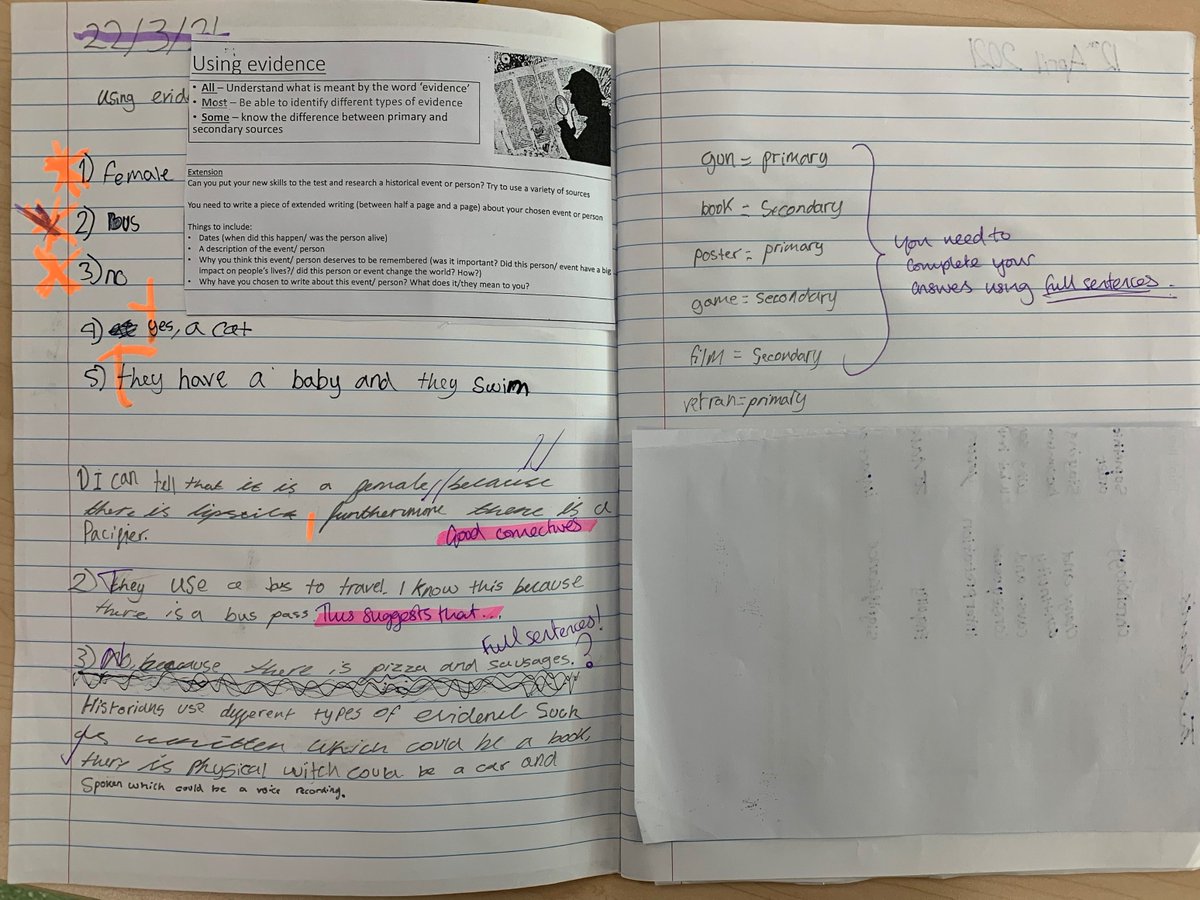 22/3/21
Using evid
Using evidence
• All – Understand what is meant by the word 'evidence'
• Most – Be able to identify different types of evidence
• Some – know the difference between primary and
secondary sources
Extension
Can you put your new skills to the test and research a historical event or person? Try to use a variety of sources
You need to write a piece of extended writing (between half a page and a page) about your chosen event or person
Things to include:
• Dates (when did this happen/ was the person alive)
• A description of the event/ person
• Why you think this event/ person deserves to be remembered (was it important? Did this person/ event have a big
impact on people's lives?/ did this person or event change the world? How?)
• Why have you chosen to write about this event/ person? What does it/they mean to you?
1) female
2) bus
3) no
4) yes, a cat
5) they have a baby and they swim
1) I can tell that it is a female // because
there is furthermore there is a
Pacifier.
Good connectives
2) They use a bus to travel. I know this because
there is a bus pass. This suggests that...
Full sentences!
3) No, because there is pizza and sausages. ?
Historians use different types of evidenel Such
as written which could be a book,
there is Physical witch could be a car and
Spoken which could be a voice recording.
12th April 2021
gun = primary
book = Secondary
poster = primary
game = secondary
film = Secondary
vetran = primary
You need to
complete your
answes using full sentences.